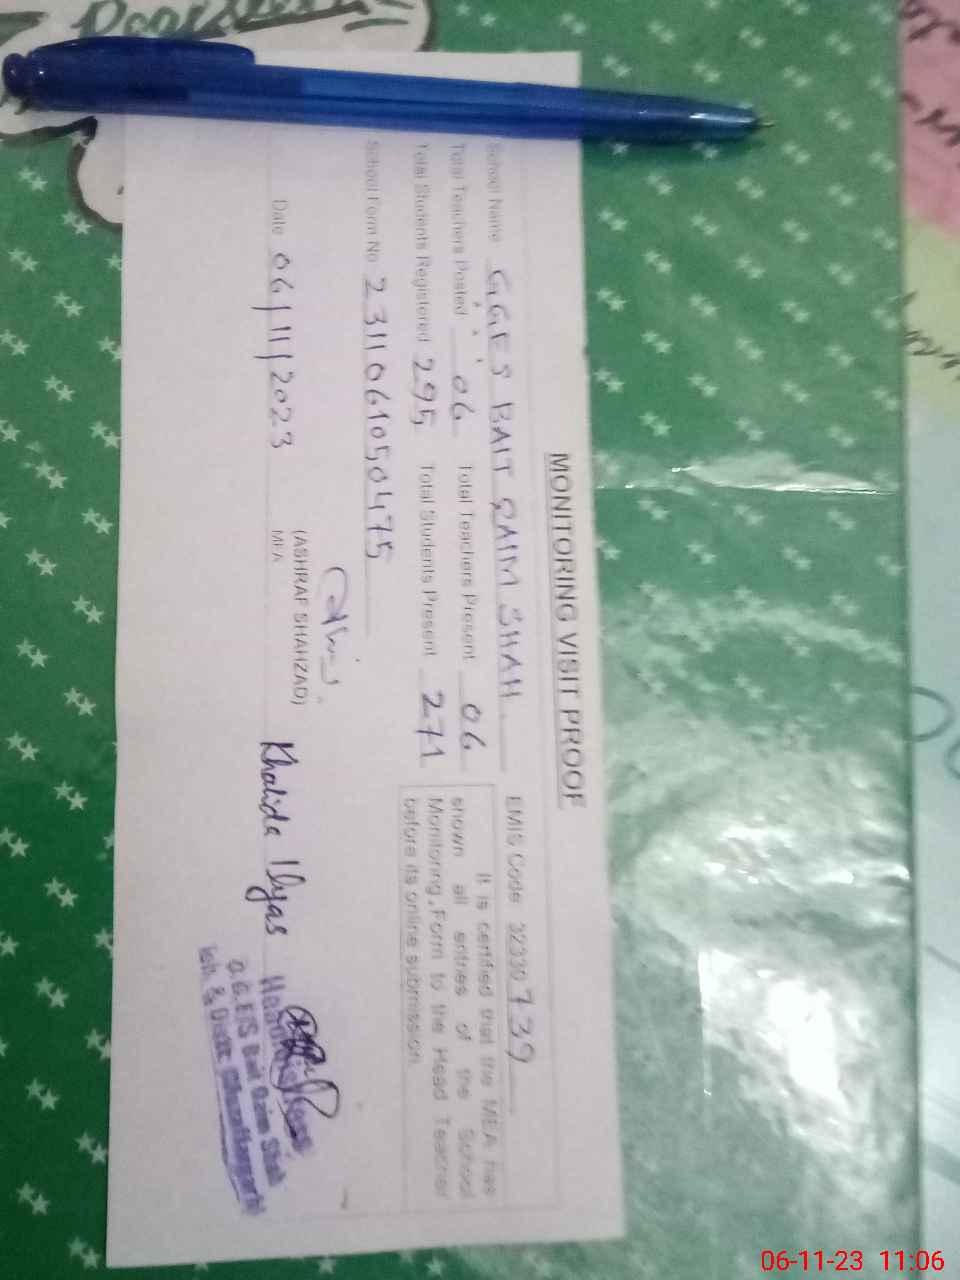 MONITORING VISIT PROOF
School Name GGES BAIT QAIM SHAH EMIS Code 32330739
Total Teachers Posted 06 Total Teachers Present 06
Total Students Registered 295 Total Students Present 271
It is certified that the MEA has
shown all entries of the School
Monitoring Form to the Head Teacher
before its online submission.
School Form No 2311061050475
(ASHRAF SHAHZAD)
Date 06/11/2023 MEA
Khalida Ilyas
Headmistress
G.G.E/S Bait Qaim Shah
Teh & Distt: Muzaffargarh
06-11-23 11:06